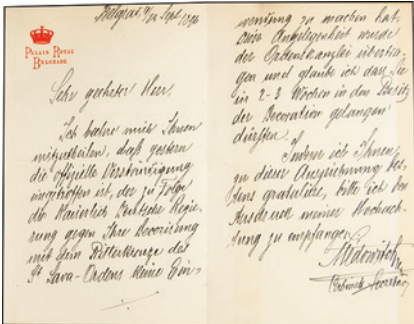 PALAIS ROYAL
BELGRADE
Belgrad, Sept. 1896
Sehr geehrter Herr,
Ich beehre mich Ihnen
mitzutheilen, daß gestern
die offizielle Verständigung
eingetroffen ist, der zu Folge
die Kaiserlich Deutsche Regie-
rung gegen Ihre Decorirung
mit dem Ritterkreuze des
St Sava-Ordens keine Ein-
wendung zu machen hat.
Diese Angelegenheit wurde
der Ordenskanzlei übertra-
gen und glaube ich daß Sie
in 2-3 Wochen in den Besitz
der Decoration gelangen
dürften.
Indem ich Ihnen
zu dieser Auszeichnung bes-
tens gratulire, bitte ich den
Ausdruck meiner Hochach-
tung zu empfangen